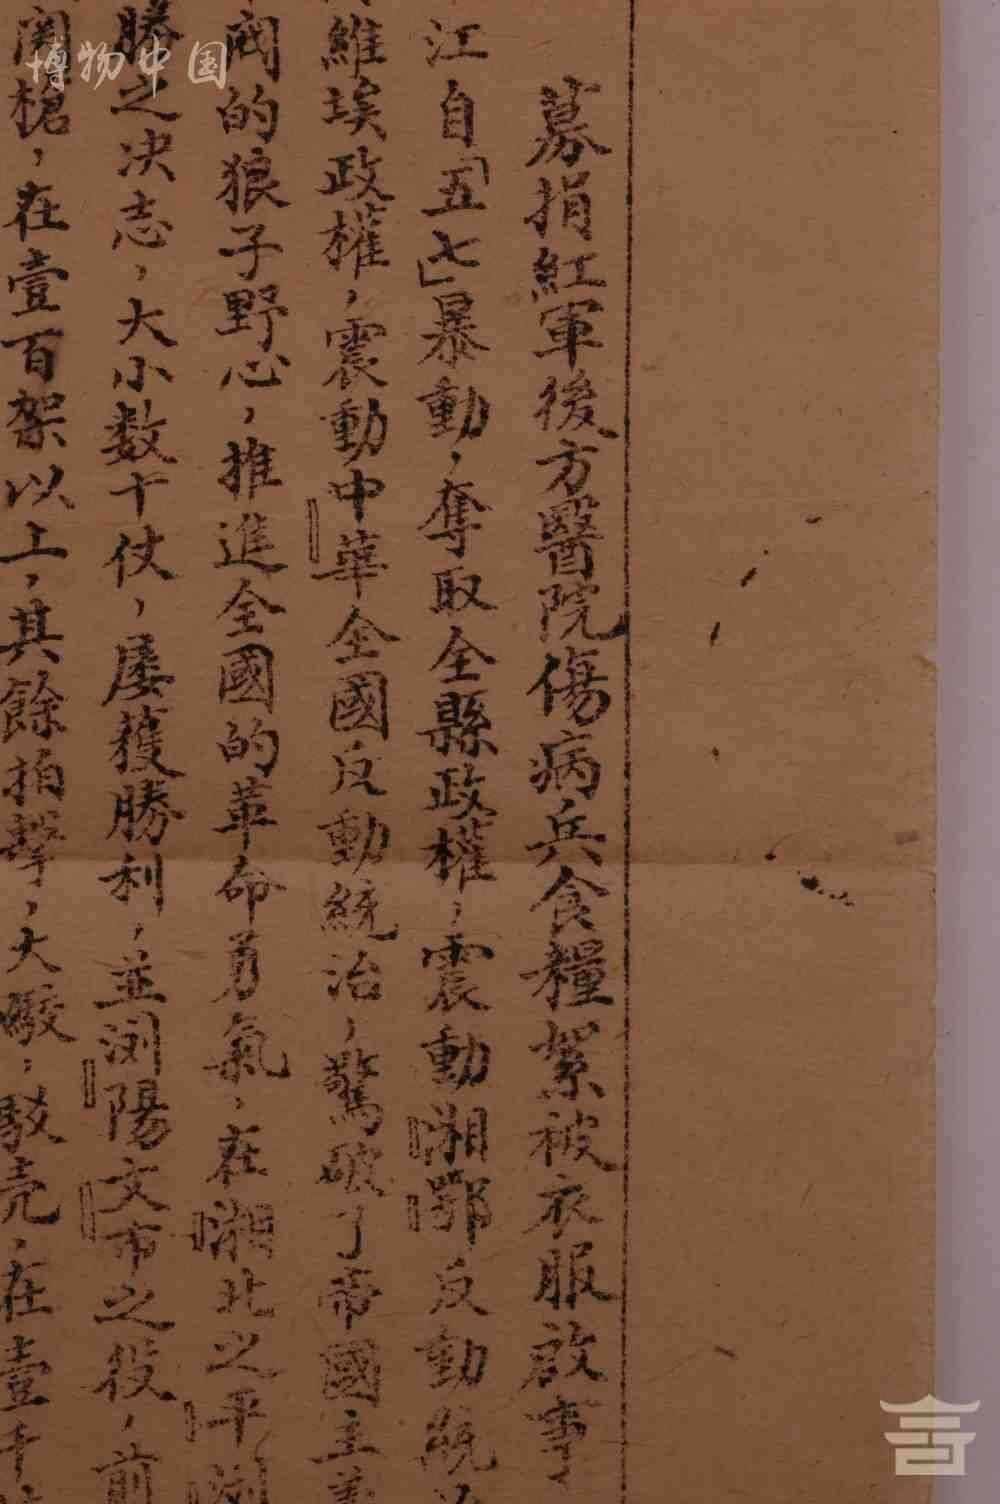 博物中国
募捐紅軍後方醫院傷病兵食糧絮被衣服啟事
江自「五七」暴動，奪取全縣政權，震動湘鄂反動統
維埃政權，震動中華全國反動統治，驚破了帝國主義
閥的狼子野心，推進全國的革命勇氣，在湘北之平瀏
勝之决志，大小数十仗，屡獲勝利，並浏陽文市之役，前
槍，在壹百架以上，其餘拍擊，大礮，駁壳，在壹千